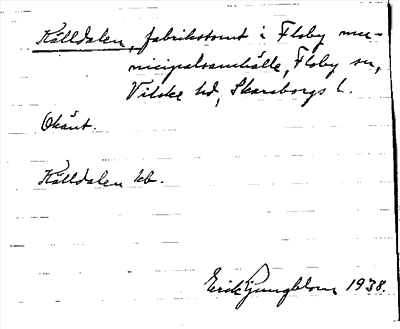 Källdalen, fabrikstomt i Floby mu-
nicipalsamhälle, Floby sn,
Vilske hd, Skaraborgs l.
Okänt.
Källdalen kb.
Erik Ljungblom 1938.